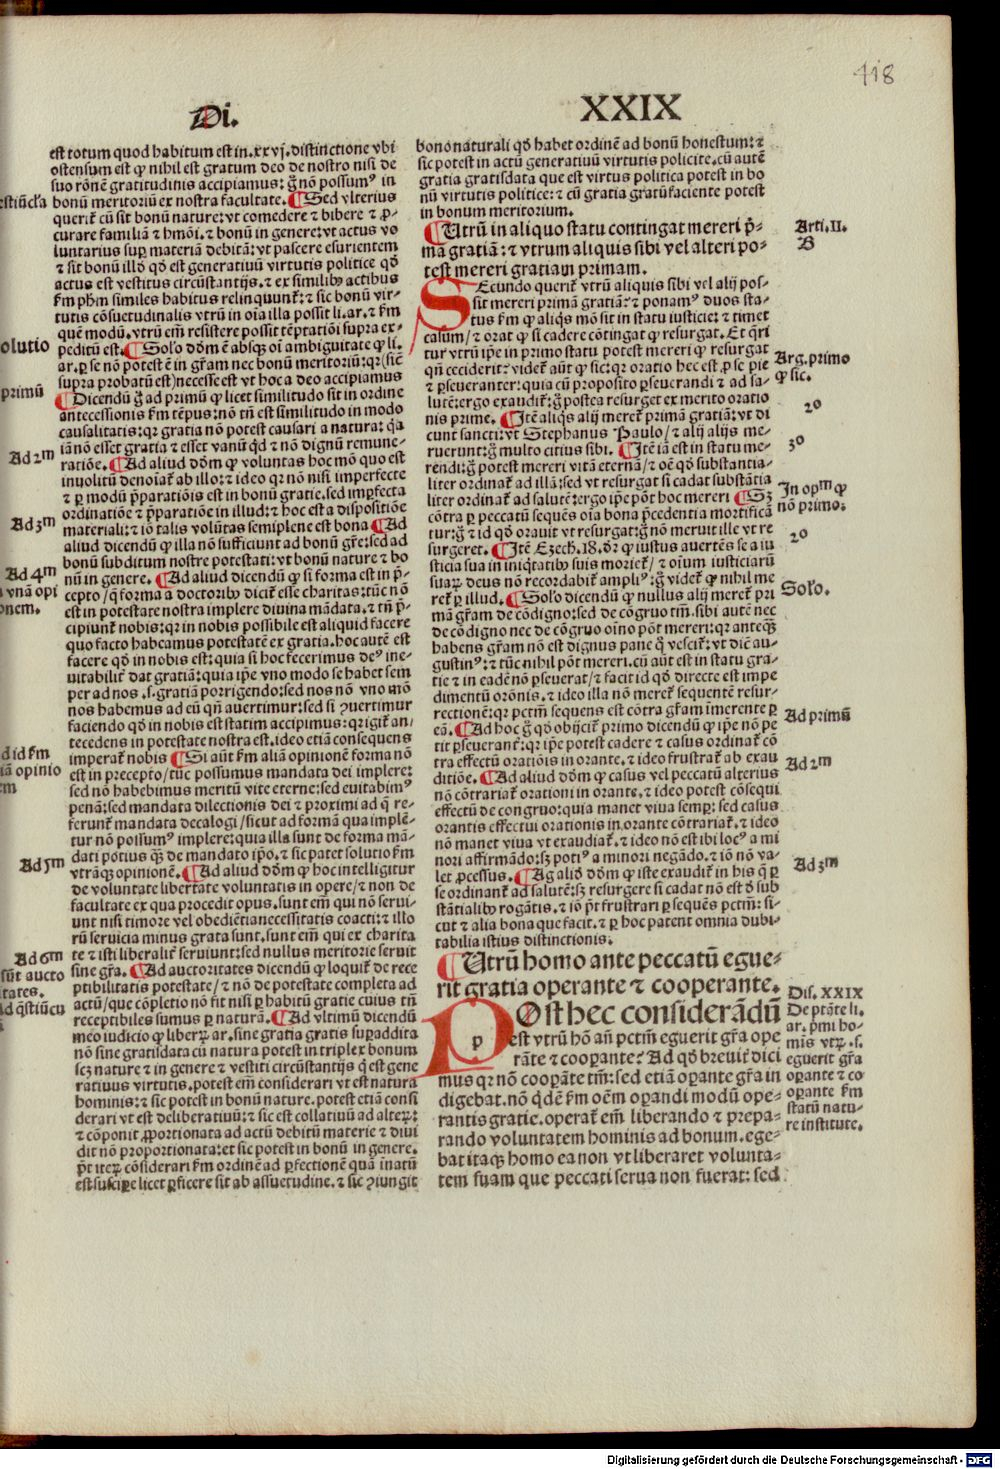 418
Di.
XXIX
est totum quod habitum est in.xxvj.distinctione vbi
ostensum est ꝙ nihil est gratum deo de nostro nisi de
suo rōnē gratitudinis accipiamus: g̃ nō possumꝰ in
bonū meritoriū ex nostra facultate. ¶ Sed vlterius
queriť cū sit bonū nature: vt comedere ⁊ bibere ⁊ ꝓ-
curare familiā ⁊ hmōi. ⁊ bonū in genere: vt actus vo
luntarius suꝑ materiā debitā: vt pascere esurientem
⁊ sit bonū illđ qđ est generatiuū virtutis politice qđ
actus est vestitus circūstantijs. ⁊ ex similibꝰ actibus
ẜm pħm similes habitus relinquunť: ⁊ sic bonū vir-
tutis cōsuetudinalis vtrū in oīa illa possit li.ar. ⁊ ẜm
quē modū. vtrū em̄ resistere possit tēptatiōi supra ex-
peditū est. ¶ Solo dōm ē absqꝫ oī ambiguitate ꝙ li.
ar. ꝑ se nō potest ē in gr̄am nec bonū meritoriū: qꝛ (sic̄
supra probatū est) necesse est vt hoc a deo accipiamus
¶ Dicendū g̃ ad primū ꝙ licet similitudo sit in ordine
antecessionis ẜm tēpus: nō tn̄ est similitudo in modo
causalitatis: qꝛ gratia nō potest causari a natura: qꝛ
iā nō esset gratia ⁊ esset vanū qđ ⁊ nō dignū remune-
ratiōe. ¶ Ad aliud dōm ꝙ voluntas hoc mō quo est
inuolitū denoīať ab illo: ⁊ ideo qꝛ nō nisi imperfecte
⁊ ꝑ modū p̄paratiōis est in bonū gratie. sed imꝑfecta
ordinatiōe ⁊ p̄paratiōe in illud: ⁊ hoc est a dispositiōe
materiali: ⁊ iō talis volūtas semiplene est bona ¶ Ad
aliud dicendū ꝙ illa nō sufficiunt ad bonū gr̄e: sed ad
bonū subditum nostre potestati: vt bonū nature ⁊ bo
nū in genere. ¶ Ad aliud dicendū ꝙ si forma est in p̄-
cepto / q̄ forma a doctoribꝰ diciť esse charitas: tūc nō
est in potestate nostra implere diuina mādata. ⁊ tn̄ p̄-
cipiunť nobis: qꝛ in nobis possibile est aliquid facere
quo facto habeamus potestatē ex gratia. hoc autē est
facere qđ in nobis est: quia si hoc fecerimus deꝰ ine-
uitabiliť dat gratiā: quia ipe vno modo se habet sem
per ad nos .s. gratiā porrigendo: sed nos nō vno mō
nos habemus ad eū qn̄ auertimur: sed si ꝯuertimur
faciendo qđ in nobis est statim accipimus: qꝛ igiť an/
tecedens in potestate nostra est. ideo etiā consequens
imperať nobis ¶ Si aūt ẜm aliā opinionē forma nō
est in precepto / tūc possumus mandata dei implere:
sed nō habebimus meritū vite eterne: sed euitabimꝰ
penā: sed mandata dilectionis dei ⁊ proximi ad q̄ re-
ferunť mandata decalogi / sicut ad formā qua implē-
tur nō possumꝰ implere: quia illa sunt de forma mā-
dati potius qꝫ de mandato ipō. ⁊ sic patet solutio ẜm
vtrāqꝫ opinionē. ¶ Ad aliud dōm ꝙ hoc intelligitur
de voluntate libertate voluntatis in opere / ⁊ non de
facultate ex qua procedit opus. sunt em̄ qui nō serui-
unt nisi timore vel obediētia necessitatis coacti: ⁊ illo
rū seruicia minus grata sunt. sunt em̄ qui ex charita
te ⁊ isti liberaliť seruiunt: sed nullus meritorie seruit
sine gr̄a. ¶ Ad auctoritates dicendū ꝙ loquiť de rece
ptibilitatis potestate / ⁊ nō de potestate completa ad
actū / que cōpletio nō fit nisi ꝑ habitū gratie cuius tn̄
receptibiles sumus ꝑ naturā. ¶ Ad vltimū dicendū
meo iudicio ꝙ liberꝝ ar. sine gratia gratis suꝑaddita
nō sine gratisdata cū natura potest in triplex bonum
scꝫ nature ⁊ in genere ⁊ vestiti circūstantijs q̄ est gene
ratiuus virtutis. potest em̄ considerari vt est natura
hominis: ⁊ sic potest in bonū nature. potest etiā consi
derari vt est deliberatiuū: ⁊ sic est collatiuū ad alteꝝ:
⁊ cōponit ꝓportionata ad actū debitū materie ⁊ diui
dit nō proportionata: et sic potest in bonū in genere.
p̄t iteꝝ cōsiderari ẜm ordinē ad ꝑfectionē quā inatū
est suscipere licet ꝑficere sit ab assuetudine. ⁊ sic ꝯiungit
estiūcła
olutio
primū
Ad 2m
Ad 3m
Ad 4m
vnā opi
onem.
d id ẜm
iā opinio
em
Ad 5m
Ad 6m
sūt aucto
itates.
Ad q̄stiū cu
bono naturali qđ habet ordinē ad bonū honestum: ⁊
sic potest in actū generatiuū virtutis policite. cū autē
gratia gratisdata que est virtus politica potest in bo
nū virtutis politice: ⁊ cū gratia gratūfaciente potest
in bonum meritorium.
¶ Utrū in aliquo statu contingat mereri p̄-
mā gratiā: ⁊ vtrum aliquis sibi vel alteri po-
test mereri gratiam primam.
SEcundo queriť vtrū aliquis sibi vel alij pos-
sit mereri primā gratiā: ⁊ ponamꝰ duos sta-
tus ẜm ꝙ aliq̄s mō sit in statu iusticie: ⁊ timet
casum / ⁊ orat ꝙ si cadere cōtingat ꝙ resurgat. Et q̄ri
tur vtrū ipe in primo statu potest mereri ꝙ resurgat
qn̄ ceciderit: videť aūt ꝙ sic: qꝛ oratio hec est ꝓ se pie
⁊ ꝑseueranter: quia cū proposito ꝑseuerandi ⁊ ad sa-
lutē: ergo exaudiť: g̃ postea resurget ex merito oratio
nis prime. ¶ Itē aliq̄s alij mereť primā gratiā: vt di
cunt sancti: vt Stephanus Paulo / ⁊ alij alijs me-
ruerunt: g̃ multo citius sibi. ¶ Itē iā est in statu me-
rendi: g̃ potest mereri vitā eternā / ⁊ oē qđ substantia-
liter ordinať ad illā: sed vt resurgat si cadat substātia
liter ordinať ad salutē: ergo ipe pōt hoc mereri ¶ Sꝫ
cōtra ꝑ peccatū sequēs oīa bona p̄cedentia mortificā
tur: g̃ ⁊ id qđ orauit vt resurgat: g̃ nō meruit ille vt re
surgeret. ¶ Itē Ezech.18. dr̄ ꝙ iustus auertēs se a iu
sticia sua in iniq̄tatibꝰ suis morieť / ⁊ oīum iusticiarū
suaꝝ deus nō recordabiť ampliꝰ: g̃ videť ꝙ nihil me
reť ꝑ illud. ¶ Solo dicendū ꝙ nullus alij mereť pri
mā gr̄am de cōdigno: sed de cōgruo tm̄. sibi autē nec
de cōdigno nec de cōgruo oīno pōt mereri: qꝛ anteqꝫ
habens gr̄am nō est dignus pane q̄ vesciť: vt dic̄ au-
gustinꝰ: ⁊ tūc nihil pōt mereri. cū aūt est in statu gra-
tie ⁊ in eadē nō ꝑseuerat / ⁊ facit id qđ directe est impe
dimentū orōnis. ⁊ ideo illa nō mereť sequentē resur-
rectionē: qꝛ pctm̄ sequens est cōtra gr̄am īmerente ꝑ
eā. ¶ Ad hoc g̃ qđ obijciť primo dicendū ꝙ ipe nō pe
tit ꝑseueranť: qꝛ ipe potest cadere ⁊ casus ordinať cō
tra effectū oratiōis in orante. ⁊ ideo frustrať ab exau
ditiōe. ¶ Ad aliud dōm ꝙ casus vel peccatū alterius
nō cōtrariať orationi in orante. ⁊ ideo potest cōsequi
effectū de congruo: quia manet viua semꝑ: sed casus
orantis effectui orationis in orante cōtrariať. ⁊ ideo
nō manet viua vt exaudiať. ⁊ ideo nō est ibi locꝰ a mi
nori affirmādo: sꝫ potiꝰ a minori negādo. ⁊ iō nō va-
let ꝓcessus. ¶ Ag aliđ dōm ꝙ iste exaudiť in his q̄ ꝑ
se ordinanť ad salutē: sꝫ resurgere si cadat nō est đ sub
stātialibꝰ rogātis. ⁊ iō p̄t frustrari ꝑ sequēs pctm̄: si-
cut ⁊ alia bona que facit. ⁊ ꝑ hoc patent omnia dubi-
tabilia istius distinctionis.
¶ Utrū homo ante peccatū egue-
rit gratia operante ⁊ cooperante.
POst hec considerādū
est vtrū hō an̄ pctm̄ eguerit gr̄a ope
rāte ⁊ cooꝑante? Ad qđ breuiť dici
mus qꝛ nō cooꝑāte tm̄: sed etiā oꝑante gr̄a in
digebat. nō q̄dē ẜm oēm oꝑandi modū ope-
rantis gratie. operať em̄ liberando ⁊ prepa-
rando voluntatem hominis ad bonum. ege-
bat itaqꝫ homo ea non vt liberaret volunta-
tem suam que peccati serua non fuerat: sed
Arti.II.
B
Arg.primo
ꝙ sic.
20
30
In opm ꝙ
nō primo:
20
Solo.
Ad primū
Ad 2m
Ad 3m
Dis.XXIX
De ptāte li.
ar. pmi ho-
mīs vtꝝ .s.
eguerit gr̄a
oꝑante ⁊ co
oꝑante ẜm
statū natu-
re institute.
Digitalisierung gefördert durch die Deutsche Forschungsgemeinschaft - DFG